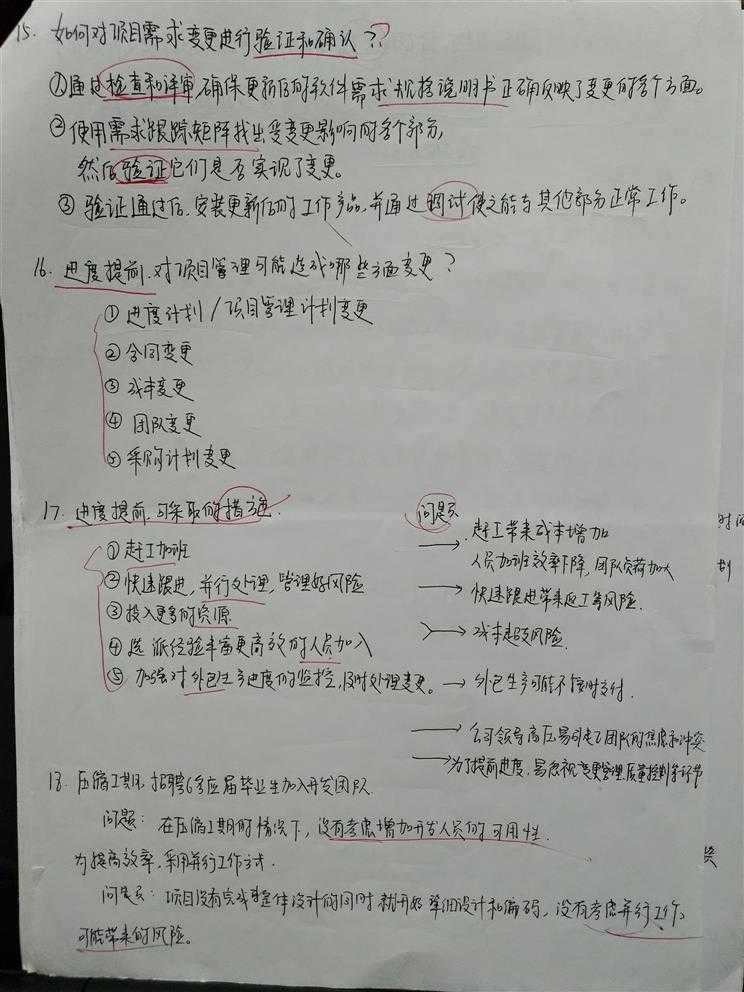 15. 如何对项目需求变更进行验证和确认??
①通过检查和评审,确保更新后的软件需求规格说明书正确反映了变更的各个方面。
②使用需求跟踪矩阵找出受变更影响的各个部分,
然后验证它们是否实现了变更。
③ 验证通过后,安装更新后的工作产品,并通过调试使之能与其他部分正常工作。
16. 进度提前,对项目管理可能造成哪些方面变更?
① 进度计划/项目管理计划变更
② 合同变更
③ 成本变更
④ 团队变更
⑤ 采购计划变更
17. 进度提前,可采取的措施. 问题:
① 赶工加班 → 赶工带来成本增加
人员加班效率下降,团队负荷加大
② 快速跟进,并行处理,管理好风险 → 快速跟进带来返工等风险.
③ 投入更多的资源 → 成本超支风险.
④ 选派经验丰富更高效的人员加入
⑤ 加强对外包生产进度的监控,及时处理变更。 → 外包生产可能不按时交付.
→ 公司领导高压易引起团队的焦虑和冲突
→ 为了提前进度,易忽视变更管理,质量控制等环节
18. 压缩工期,招聘6名应届毕业生加入开发团队.
问题: 在压缩工期的情况下,没有考虑增加开发人员的可用性.
为提高效率,采用并行工作方式.
问题: 项目没有完成整体设计的同时就开始详细设计和编码,没有考虑并行工作
可能带来的风险。